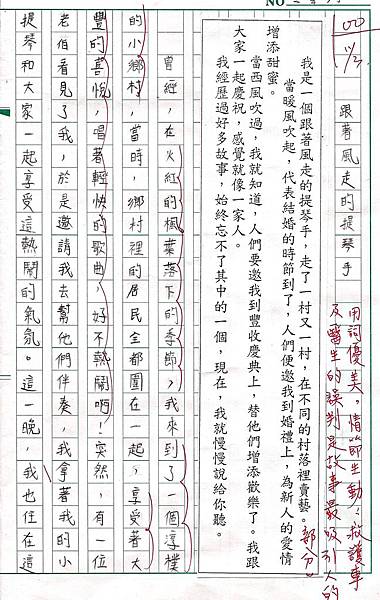 NO
100 11/2
跟著風走的提琴手
用詞優美，情節生動，救護車
及醫生的誤判是故事最吸引人的
部分。
我是一個跟著風走的提琴手，走了一村又一村，在不同的村落裡賣藝。
當暖風吹起，代表結婚的時節到了，人們便邀我到婚禮上，為新人的愛情
增添甜蜜。
當西風吹過，我就知道，人們要邀我到豐收慶典上，替他們增添歡樂了。我跟
大家一起慶祝，感覺就像一家人。
我經歷過好多故事，始終忘不了其中的一個，現在，我就慢慢說給你聽。
曾經，在火紅的楓葉落下的季節，我來到了一個淳樸
的小鄉村，當時，鄉村裡的居民全都圍在一起，享受著大
豐的喜悅，唱著輕快的歌曲，好不熱鬧啊！突然，有一位
老伯看見了我，於是邀請我去幫他們伴奏，我拿著我的小
提琴和大家一起享受這熱鬧的氣氛。這一晚，我也住在這